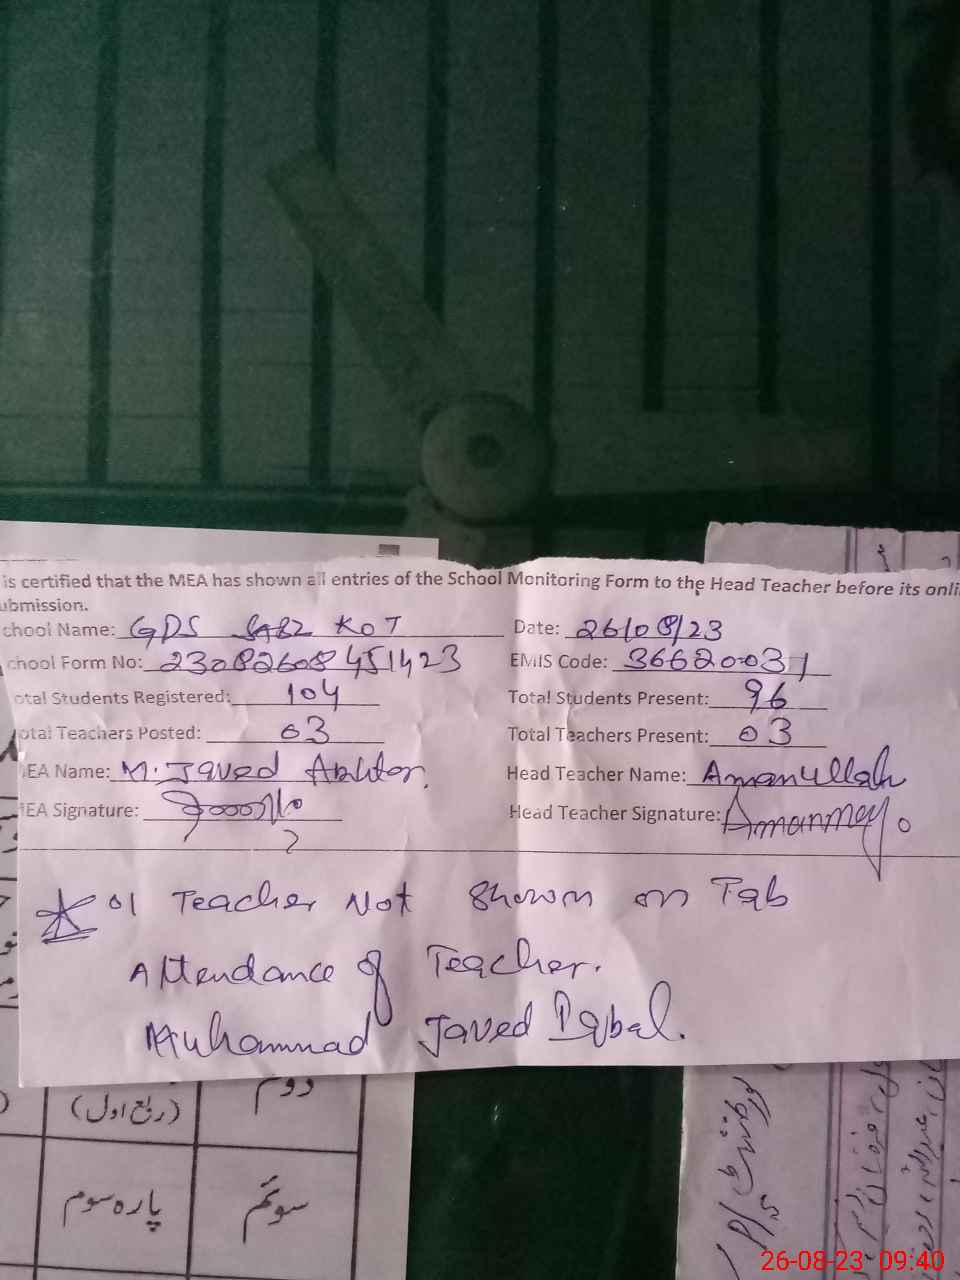 is certified that the MEA has shown all entries of the School Monitoring Form to the Head Teacher before its onli
ubmission.
chool Name: GDS SABZ KOT Date: 26/08/23
chool Form No: 23082608451423 EMIS Code: 36620031
otal Students Registered: 104 Total Students Present: 96
otal Teachers Posted: 03 Total Teachers Present: 03
EA Name: M. Javed Akhtar. Head Teacher Name: Amanullah
EA Signature: Head Teacher Signature:
01 Teacher Not Shown on Tab
Attendance of Teacher.
Muhammad Javed Iqbal.
(ربع اول) دوم
پارہ سوم سوئم
26-08-23 09:40